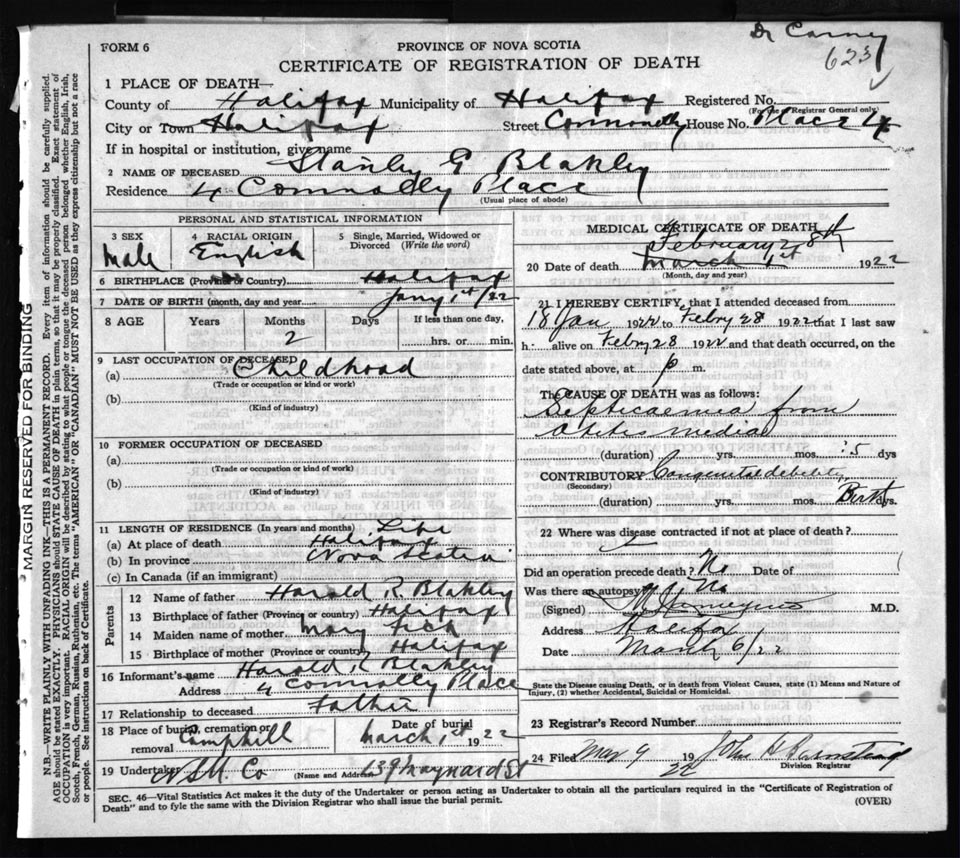 Dr Carney
623
FORM 6
PROVINCE OF NOVA SCOTIA
CERTIFICATE OF REGISTRATION OF DEATH
1 PLACE OF DEATH—
County of Halifax Municipality of Halifax Registered No.
(For Registrar General only)
City or Town Halifax Street Connonally House No. Place 4
If in hospital or institution, give name
2 NAME OF DECEASED Stanley G Blakley
Residence 4 Connolly Place
(Usual place of abode)
PERSONAL AND STATISTICAL INFORMATION
3 SEX 4 RACIAL ORIGIN 5 Single, Married, Widowed or
Divorced (Write the word)
Male English
6 BIRTHPLACE (Province or Country) Halifax
7 DATE OF BIRTH (month, day and year) Jany 1st/22
8 AGE Years Months Days If less than one day,
2 hrs. or min.
9 LAST OCCUPATION OF DECEASED
(a) Childhood
(Trade or occupation or kind or work)
(b)
(Kind of industry)
10 FORMER OCCUPATION OF DECEASED
(a)
(Trade or occupation or kind of work)
(b)
(Kind of industry)
11 LENGTH OF RESIDENCE (In years and months) Life
(a) At place of death Halifax
(b) In province Nova Scotia
(c) In Canada (if an immigrant)
Parents
12 Name of father Harold R. Blakley
13 Birthplace of father (Province or country) Halifax
14 Maiden name of mother Mary
15 Birthplace of mother (Province or country) Halifax
16 Informant's name Harold R Blakley
Address 4 Connolly Place
17 Relationship to deceased Father
18 Place of burial, cremation or Date of burial
removal Camphill March 1st 1922
19 Undertaker N.S.U. Co (Name and Address) 139 Maynard St
MEDICAL CERTIFICATE OF DEATH
February 28th
20 Date of death March 1st 1922
(Month, day and year)
21 I HEREBY CERTIFY, that I attended deceased from
18 Jan 1922 to Febry 28 1922 that I last saw
h alive on Febry 28 1922 and that death occurred, on the
date stated above, at p m.
The CAUSE OF DEATH was as follows:
Septicaemia from
Otitis media
(duration) yrs. mos. 5 dys
CONTRIBUTORY Congenital debility
(Secondary)
(duration) yrs. mos. Birth dys.
22 Where was disease contracted if not at place of death?
Did an operation precede death? No Date of
Was there an autopsy? No
(Signed) M.D.
Address Halifax
Date March 6/22
State the Disease causing Death, or in death from Violent Causes, state (1) Means and Nature of
Injury, (2) whether Accidental, Suicidal or Homicidal.
23 Registrar's Record Number
24 Filed Mar 9 1922 John
Division Registrar
SEC. 46—Vital Statistics Act makes it the duty of the Undertaker or person acting as Undertaker to obtain all the particulars required in the "Certificate of Registration of
Death" and to fyle the same with the Division Registrar who shall issue the burial permit. (OVER)
MARGIN RESERVED FOR BINDING
N.B.—WRITE PLAINLY WITH UNFADING INK—THIS IS A PERMANENT RECORD. Every item of information should be carefully supplied.
AGE should be stated EXACTLY. PHYSICIANS should STATE CAUSE OF DEATH in plain terms, so that it may be properly classified. Exact statement of
OCCUPATION is very important. RACIAL ORIGIN will be described by stating to what people or tongue the deceased person belonged whether English, Irish,
Scotch, French, German, Russian, Ruthenian, etc. The terms "AMERICAN" OR "CANADIAN" MUST NOT BE USED as they express citizenship but not a race
or people. See instructions on back of Certificate.